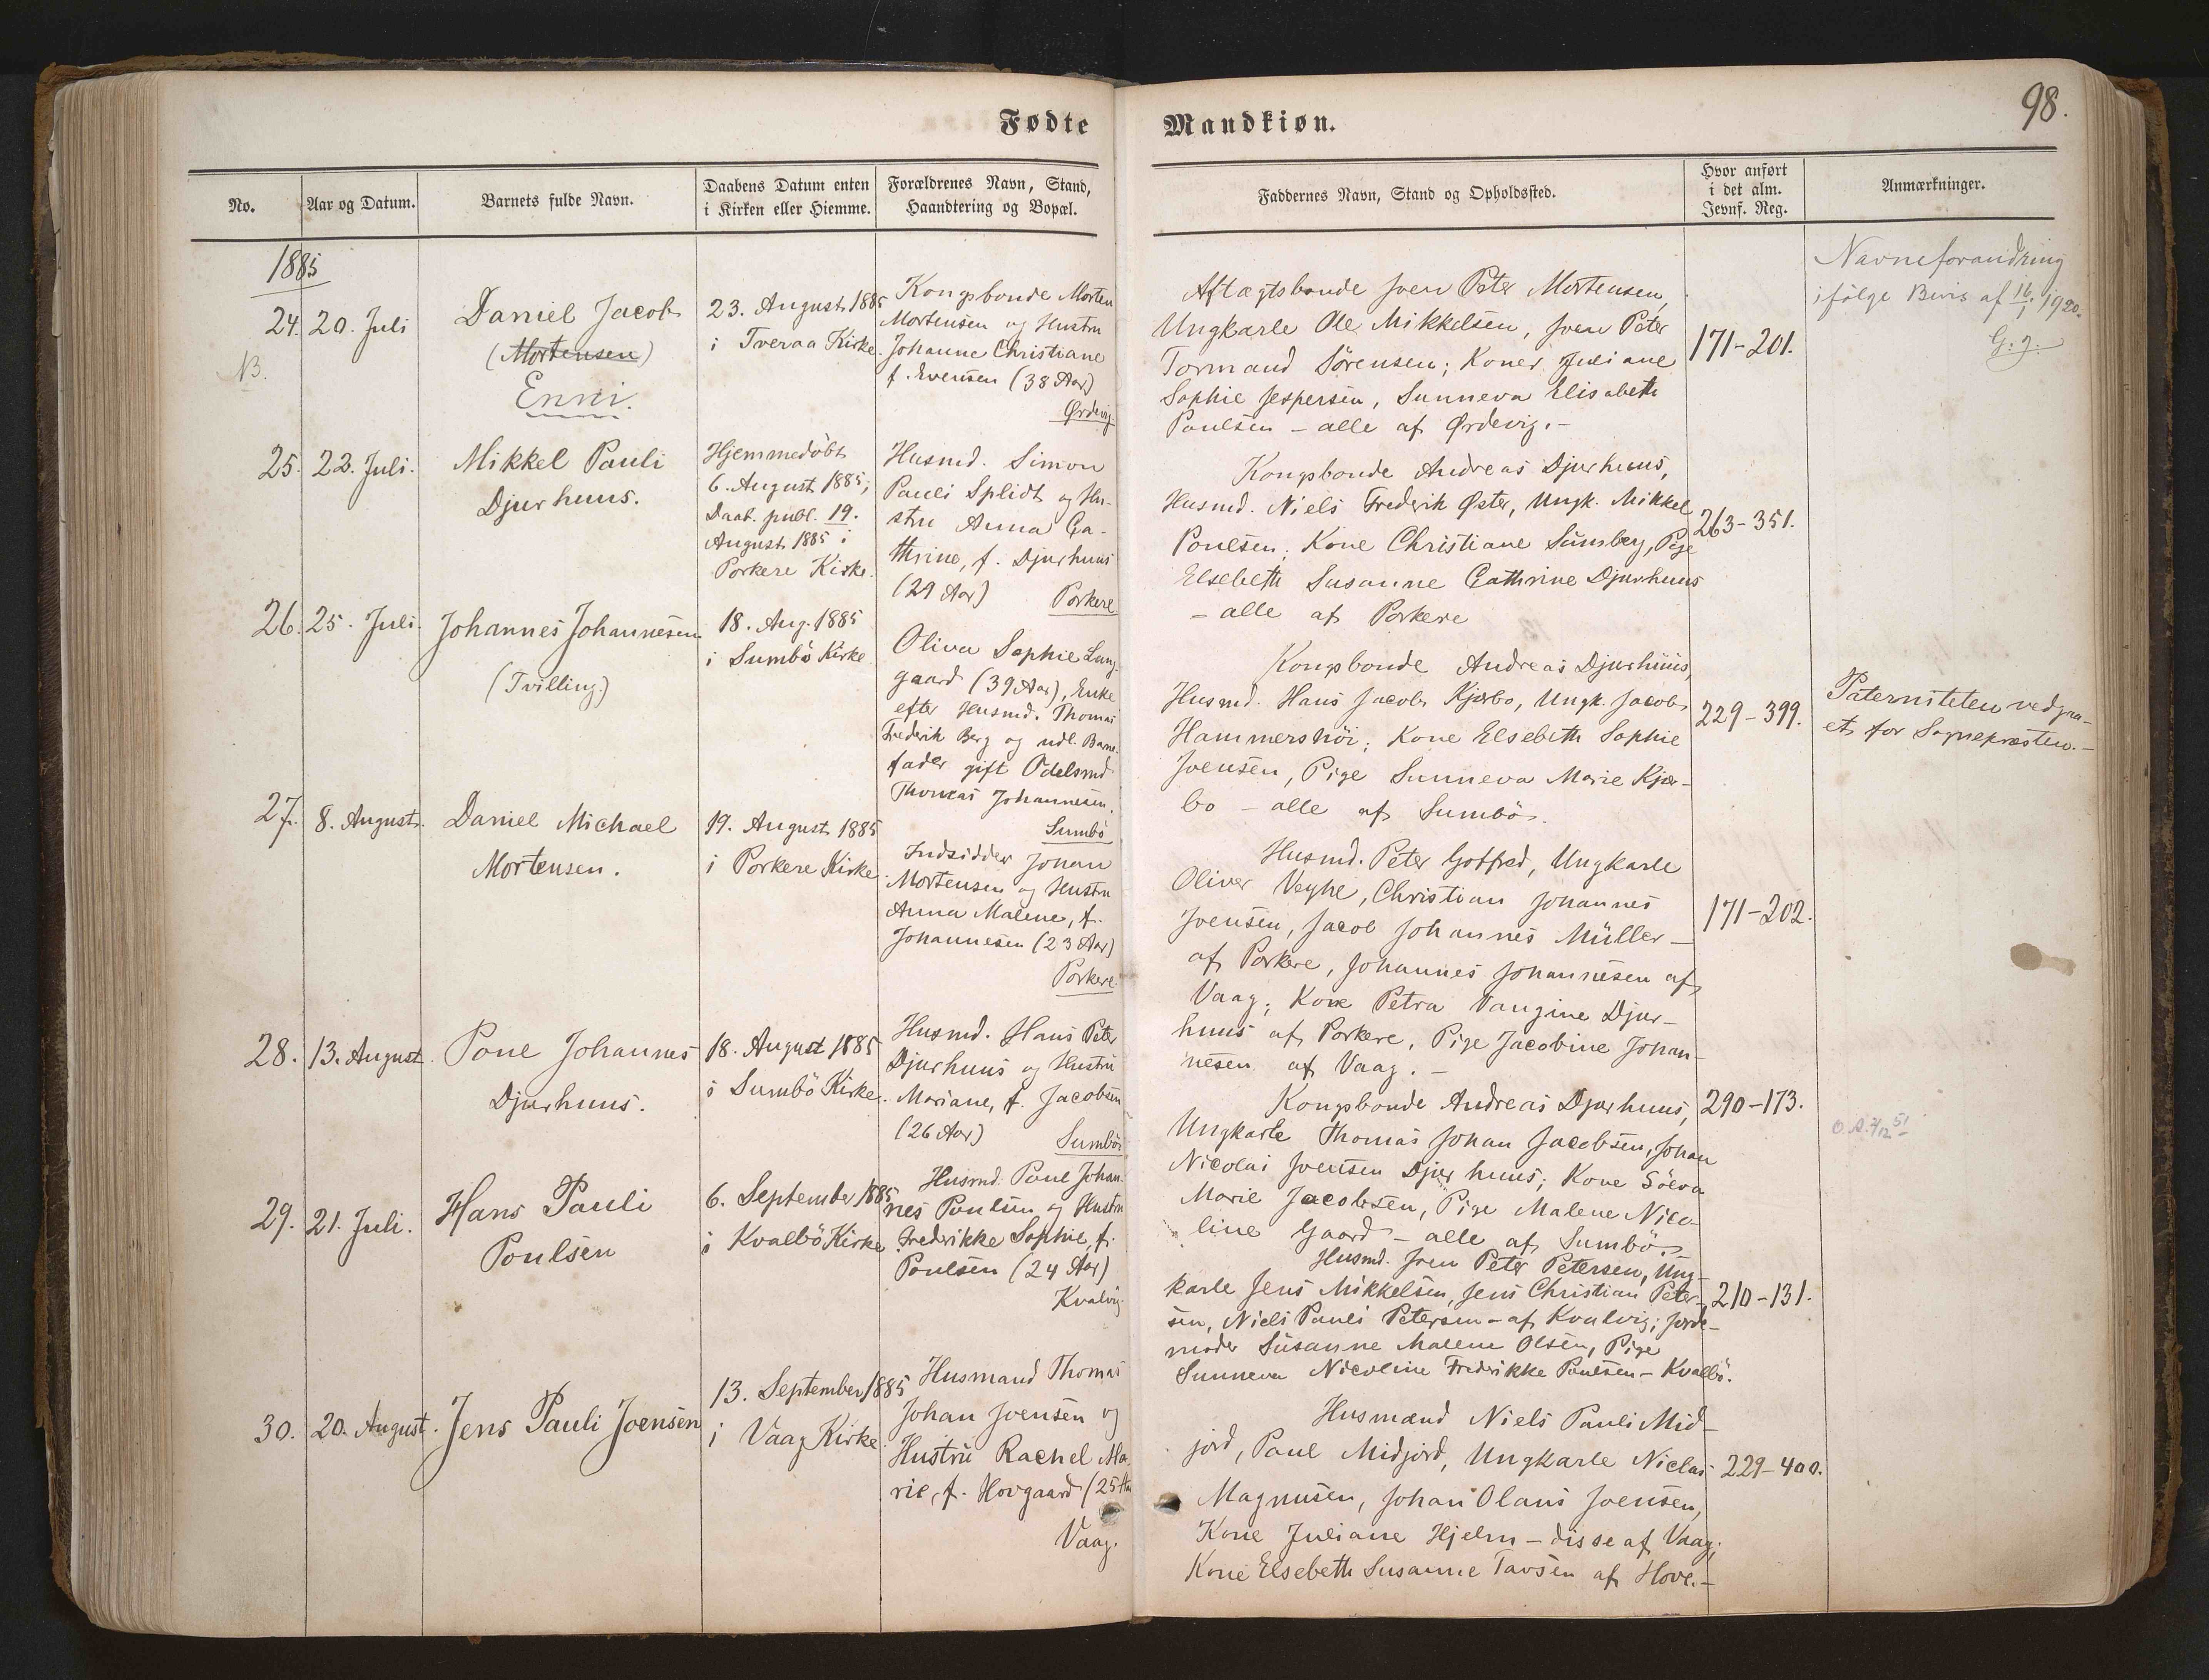 Fødte
No.
Aar og Datum.
Barnets fulde Navn.
Daabens Datum enten
i Kirken eller Hiemme.
Forældrenes Navn, Stand,
Haandtering og Bopæl.
1885
24.
NB.
20. Juli
Daniel Jacob
(Mortensen)
Enni.
23. August 1885
i Tveraa Kirke.
Kongsbonde Morten
Mortensen og Hustru
Johanne Christiane
f. Evensen (38 Aar)
Ørdevig
25.
22. Juli.
Mikkel Pauli
Djurhuus.
Hjemmedöbt
6. August 1885;
Daab. publ. 19.
August 1885 i
Porkere Kirke.
Husmd. Simon
Pauli Splidt og Hu-
stru Anna Ca-
thrine, f. Djurhuus
(29 Aar)
Porkere
26.
25. Juli.
Johannes Johannesen
(Tvilling)
18. Aug. 1885
i Sumbö Kirke
Oliva Sophie Lang-
gaard (39 Aar), Enke
efter Husmd. Thomas
Frederik Berg og udl. Barne-
fader gift Odelsmd
Thomas Johannesen.
Sumbö
27.
8. August.
Daniel Michael
Mortensen.
19. August 1885
i Porkere Kirke.
Indsidder Johan
Mortensen og Hustru
Anna Malene, f.
Johannesen (23 Aar)
Porkere
28.
13. August.
Poul Johannes
Djurhuus.
18. August 1885
i Sumbö Kirke.
Husmd. Hans Peter
Djurhuus og Hustru
Mariane, f. Jacobsen
(26 Aar)
Sumbö
29.
21. Juli.
Hans Pauli
Poulsen
6. September 1885
i Kvalbö Kirke
Husmd. Poul Johan-
nes Poulsen og Hustru
Frederikke Sophie, f.
Poulsen (24 Aar)
Kvalvig
30.
20. August.
Jens Pauli Joensen
13. September 1885
i Vaag Kirke.
Husmand Thomas
Johan Joensen og
Hustru Rachel Ma-
rie, f. Hovgaard (25 Aar
Vaag.
Mandkiøn.
98.
Faddernes Navn, Stand og Opholdssted.
Hvor anført
i det alm.
Jevnf. Reg.
Anmærkninger.
Aftægtsbonde Joen Peter Mortensen,
Ungkarle Ole Mikkelsen, Joen Peter
Tormand Sörensen; Koner Juliane
Sophie Jespersen, Sunneva Elisabeth
Poulsen - alle af Ørdevig.-
171-201.
Navneforandring
ifölge Bevis af 16/1 1920.
G. J.
Kongsbonde Andreas Djurhuus,
Husmd. Niels Frederik Øster, Ungk. Mikkel
Poulsen; Kone Christiane Sumberg, Pige
Elsebeth Susanne Cathrine Djurhuus
- alle af Porkere
263-351.
Kongsbonde Andreas Djurhuus,
Husmd. Hans Jacob Kjærbo, Ungk. Jacob
Hammershöi; Kone Elsebeth Sophie
Joensen, Pige Sunneva Marie Kjær-
bo - alle af Sumbö.
229-399.
Paterniteten vedgaa-
et for Sognepræsten.-
Husmd. Peter Gotfred, Ungkarle
Oliver Veyhe, Christian Johannes
Joensen, Jacob Johannes Müller -
af Porkere, Johannes Johannesen af
Vaag; Kone Petra Vangine Djur-
huus af Porkere, Pige Jacobine Johan-
nesen af Vaag.-
171-202.
Kongsbonde Andreas Djurhuus,
Ungkarle Thomas Johan Jacobsen, Johan
Nicolai Joensen Djurhuus; Kone Sölva
Marie Jacobsen, Pige Malene Nico-
line Gaard - alle af Sumbö.-
290-173.
Husmd. Joen Peter Petersen, Ung-
karle Jens Mikkelsen, Jens Christian Peter-
sen, Niels Pauli Petersen - af Kvalvig; Jorde-
moder Susanne Malene Olsen, Pige
Sunneva Nicoline Fredrikke Poulsen - Kvalbö.
210-131.
Husmænd Niels Pauli Mid-
jord, Poul Midjord, Ungkarle Niclas
Magnusen, Johan Olaus Joensen,
Kone Juliane Hjelm - disse af Vaag;
Kone Elsebeth Susanne Tavsen af Hove.-
229-400.